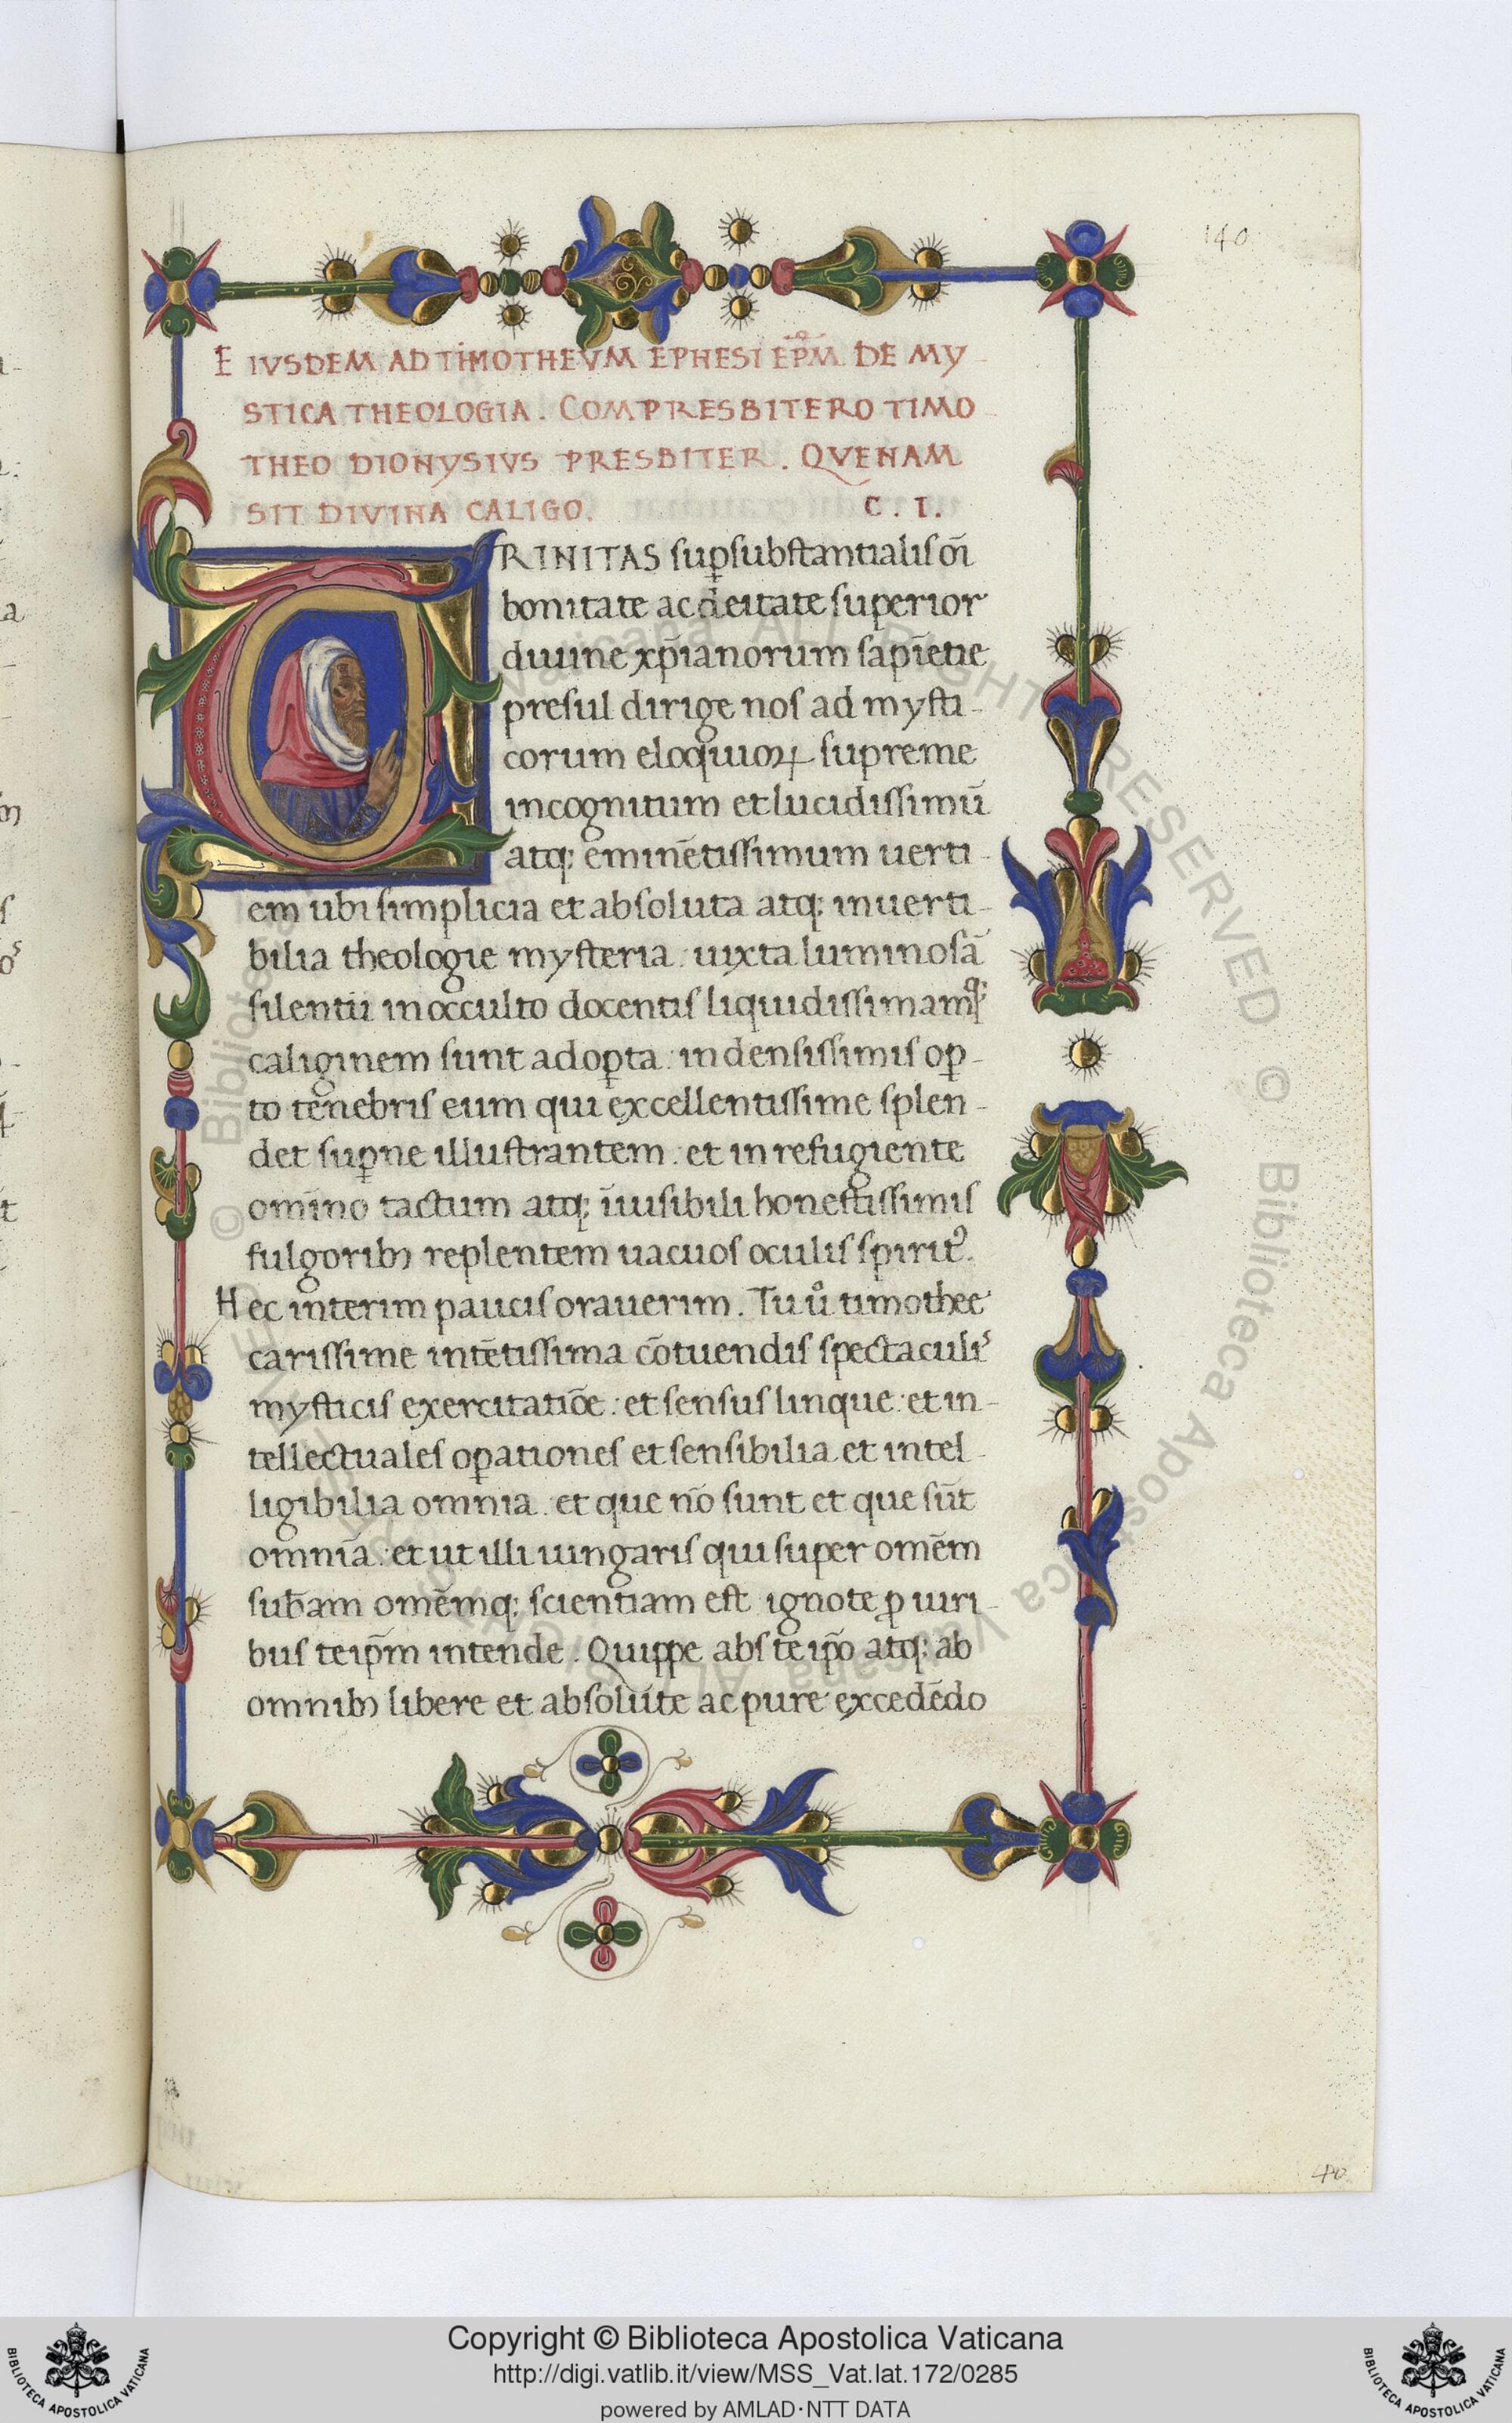 140
EIVSDEM AD TIMOTHEVM EPHESI EP̄M DE MY
STICA THEOLOGIA. COMPRESBITERO TIMO
THEO DIONYSIVS PRESBITER. QVENAM
SIT DIVINA CALIGO. C. I.
TRINITAS suꝑsubstantialis oı̄
bonitate ac deitate superior
diuine xp̄ianorum sapiētie
presul dirige nos ad mysti-
corum eloquioꝝ supreme
incognitum et lucidissimū
atq; eminētissimum uerti-
em ubi simplicia et absoluta atq; inuerti-
bilia theologie mysteria: iuxta luminosā
silentii in occulto docentis liquidissimamq;
caliginem sunt adoꝑta: in densissimis oꝑ-
to tenebris eum qui excellentissime splen-
det suꝑne illustrantem: et in refugiente
omı̄no tactum atq; ı̄uisibili honestissimis
fulgoribꝫ replentem uacuos oculis spirit᾽.
Hec interim paucis orauerim. Tu u͛o timothee
carissime intētissima cōtuendis spectaculis
mysticis exercitatiōe: et sensus linque: et in-
tellectuales oꝑationes et sensibilia et intel-
ligibilia omnia: et que nō sunt et que sūt
omnia: et ut illi iungaris qui super omēm
sub̄am omēmq; scientiam est ignote ꝓ uiri-
bus teip̄m intende. Quippe abs te ip̄o atq; ab
omnibꝫ libere et absolute ac pure excedēdo
40
Copyright © Biblioteca Apostolica Vaticana
http://digi.vatlib.it/view/MSS_Vat.lat.172/0285
powered by AMLAD·NTT DATA
BIBLIOTECA APOSTOLICA VATICANA
BIBLIOTECA APOSTOLICA VATICANA